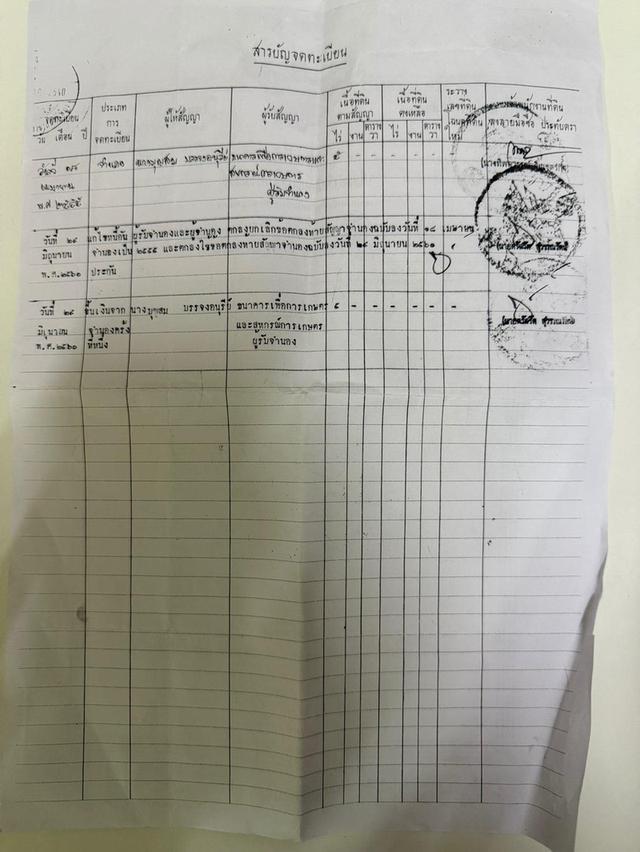 สารบัญจดทะเบียน
จดทะเบียน วัน เดือน ปี
ประเภท การ จดทะเบียน
ผู้ให้สัญญา
ผู้รับสัญญา
เนื้อที่ดิน ตามสัญญา
ไร่ งาน ตาราง วา
เนื้อที่ดิน คงเหลือ
ไร่ งาน ตาราง วา
ระวาง เลขที่ดิน โฉนดที่ดิน ใหม่
เจ้าพนักงานที่ดิน ลงลายมือชื่อ ประทับตรา
จำนอง ๕ - - - - - -
เมษายน
พ.ศ ๒๕๕๕ ผู้รับจำนอง
วันที่ ๒๘ แก้ไขหนี้อัน ผู้รับจำนองและผู้จำนอง ตกลงยกเลิกข้อตกลงท้ายสัญญาจำนองฉบับลงวันที่ ๑๘ เมษายน
มิถุนายน จำนองเป็น ๒๕๕๕ และตกลงใช้ข้อตกลงท้ายสัญญาจำนองฉบับลงวันที่ ๒๘ มิถุนายน ๒๕๖๐
พ.ศ.๒๕๖๐ ประกัน
วันที่ ๒๘ ขึ้นเงินจาก นางบุญสม บรรจงอนุรีย์ ธนาคารเพื่อการเกษตร ๕ - - - - - -
มิถุนายน จำนองครั้ง และสหกรณ์การเกษตร
พ.ศ.๒๕๖๐ ที่หนึ่ง ผู้รับจำนอง